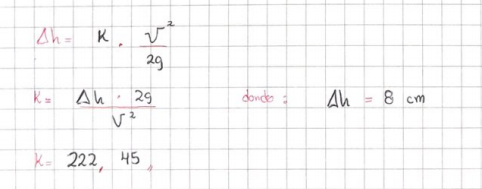 Δh = K . V²/2g
K = Δh . 2g/V² donde : Δh = 8 cm
K = 222, 45,